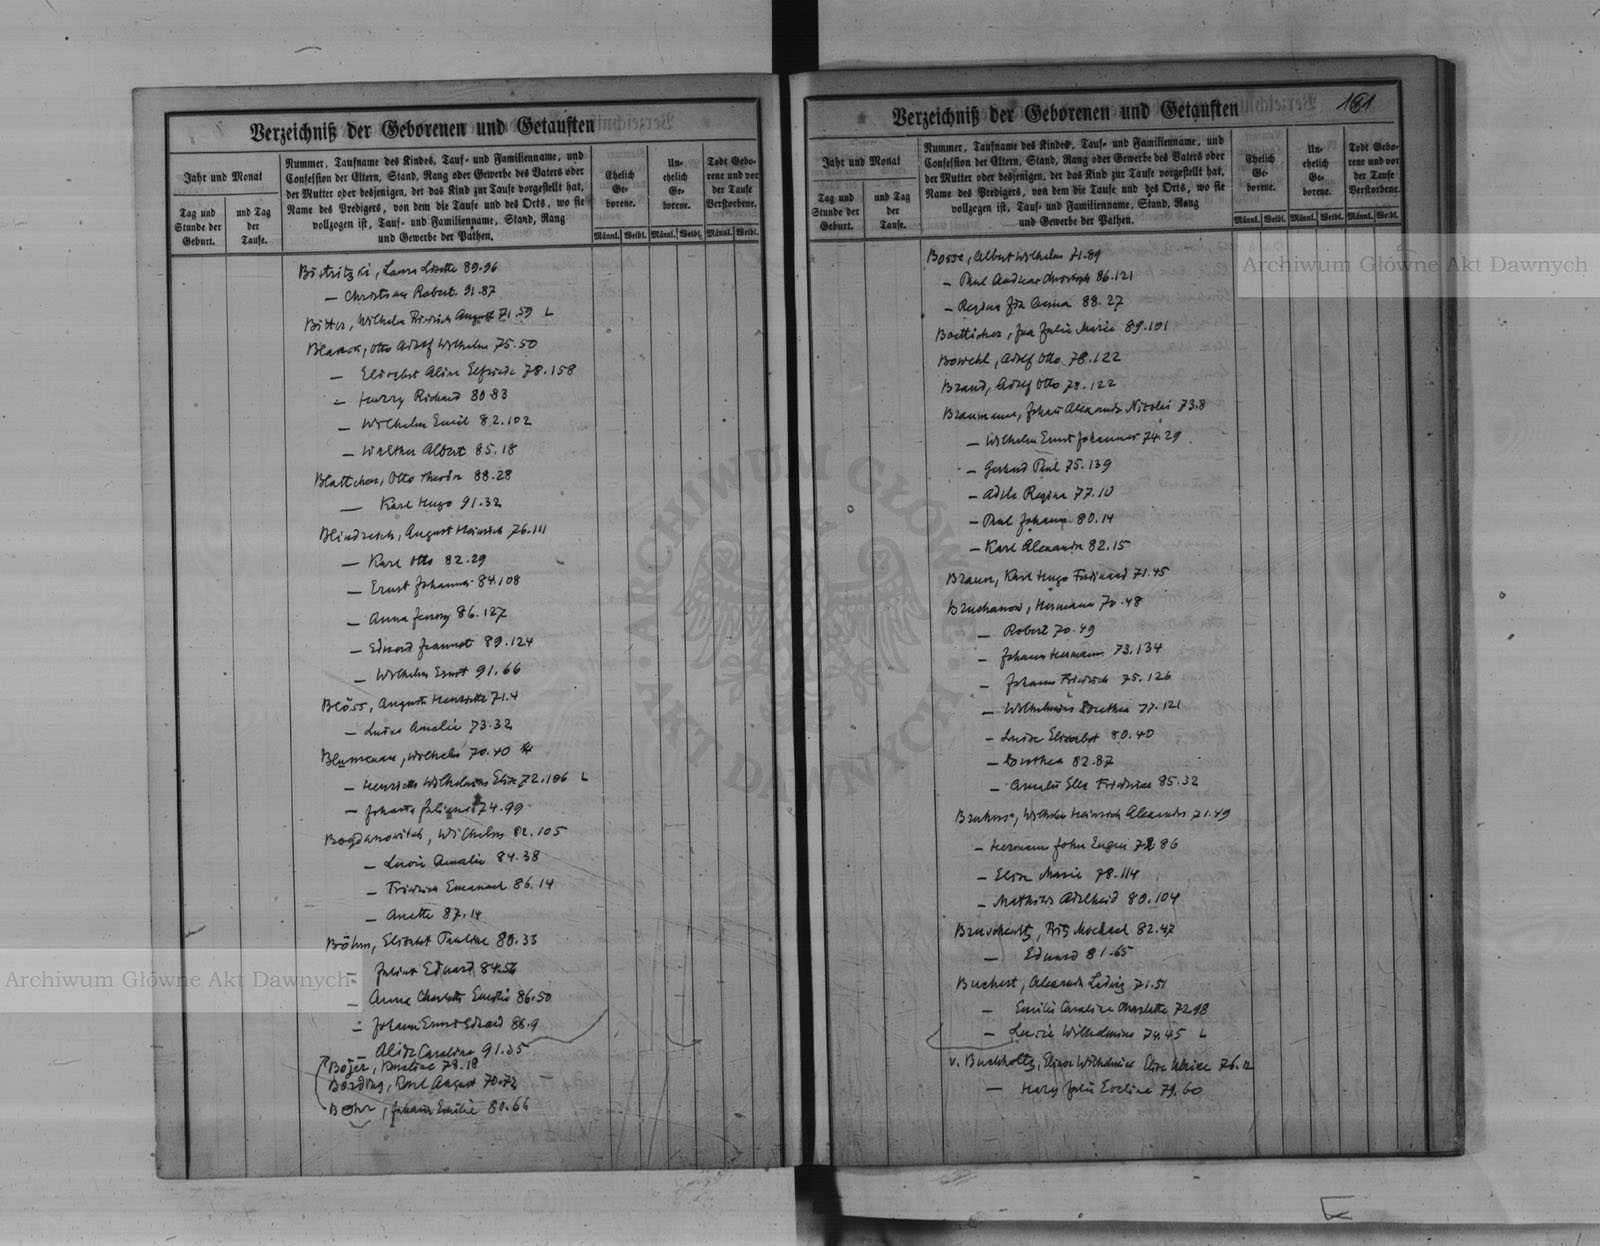 Verzeichniß der Geborenen und Getauften
Jahr und Monat
Tag und
Stunde der
Geburt.
und Tag
der
Taufe.
Nummer, Taufname des Kindes, Tauf- und Familienname, und
Confession der Eltern, Stand, Rang oder Gewerbe des Vaters oder
der Mutter oder desjenigen, der das Kind zur Taufe vorgestellt hat,
Name des Predigers, von dem die Taufe und des Orts, wo sie
vollzogen ist, Tauf- und Familienname, Stand, Rang
und Gewerbe der Pathen.
Ehelich
Ge-
borene.
Un-
ehelich
Ge-
borene.
Todt Gebo-
rene und vor
der Taufe
Verstorbene.
Männl. Weibl. Männl. Weibl. Männl. Weibl.
Bistritzki, Laura Lisette 89.96
— Christian Robert 91.87
Bitter, Wilhelm Friedrich August 71.59 L
Otto Adolf Wilhelm 75.50
— Elisabet Aline Elfriede 78.158
— Harry Richard 80.83
— Wilhelm Emil 82.102
— Walther Albert 85.18
Blattcher, Otto Theodor 88.28
— Karl Hugo 91.32
August Heinrich 76.111
— Karl Otto 82.29
— Ernst Johannes 84.108
— Anna Jenny 86.127
— Eduard Jeannot 89.124
— Wilhelm Ernst 91.66
Blöss, Auguste Henriette 71.4
— Luise Amalie 73.32
Blumenau, Wilhelm 70.40
— Henriette Wilhelmine Elise 72.106 L
— Johanna Juliane 74.99
Bogdanowitsch, Wilhelm 82.105
— Lucie Amalie 84.38
— Friedrich Emanuel 86.14
— Anette 87.14
Böhm, Elisabet Pauline 80.33
— Julius Eduard 84.56
— Anna Charlotte Emilie 86.50
— Johann Ernst Eduard 88.9
— Alide Caroline 91.35
Böjer, Karoline 78.18
Bording, Karl August 70.72
Böhr, Johann Emilie 80.66
161
Verzeichniß der Geborenen und Getauften
Jahr und Monat
Tag und
Stunde der
Geburt.
und Tag
der
Taufe.
Nummer, Taufname des Kindes, Tauf- und Familienname, und
Confession der Eltern, Stand, Rang oder Gewerbe des Vaters oder
der Mutter oder desjenigen, der das Kind zur Taufe vorgestellt hat,
Name des Predigers, von dem die Taufe und des Orts, wo sie
vollzogen ist, Tauf- und Familienname, Stand, Rang
und Gewerbe der Pathen.
Ehelich
Ge-
borene.
Un-
ehelich
Ge-
borene.
Todt Gebo-
rene und vor
der Taufe
Verstorbene.
Männl. Weibl. Männl. Weibl. Männl. Weibl.
Bosse, Albert Wilhelm 71.89
— Paul Andreas 86.121
— Regina Ida Anna 88.27
Boetticher, Ina Julie Marie 89.101
Bowehl, Adolf Otto 78.122
Brand, Adolf Otto 78.122
Braumann, Johann Alexander Nicolai 73.8
— Wilhelm Ernst Johannes 74.29
— Gerhard Paul 75.139
— Adele Regina 77.10
— Paul Johann 80.14
— Karl Alexander 82.15
Braun, Karl Hugo Ferdinand 71.45
Bruchanow, Hermann 70.48
— Robert 70.49
— Johann Hermann 73.134
— Johann Friedrich 75.126
— Wilhelmine Dorothea 77.121
— Luise Elisabet 80.40
— Dorothea 82.87
— Amalie Ella Friederike 85.32
Bruhns, Wilhelm Heinrich Alexander 71.49
— Hermann John Eugen 72.86
— Elise Marie 78.114
— Mathilde Adelheid 80.104
Fritz Michael 82.47
— Eduard 81.65
Buchert, Alexander Ludwig 71.51
— Emilie Caroline Charlotte 72.98
— Lucie Wilhelmine 74.45 L
v. Buchholtz, Elinor Wilhelmine Elise Ulrike 76.12
— Mary Julie Eveline 79.60
Archiwum Główne Akt Dawnych
Archiwum Główne Akt Dawnych
ARCHIWUM GŁÓWNE AKT DAWNYCH